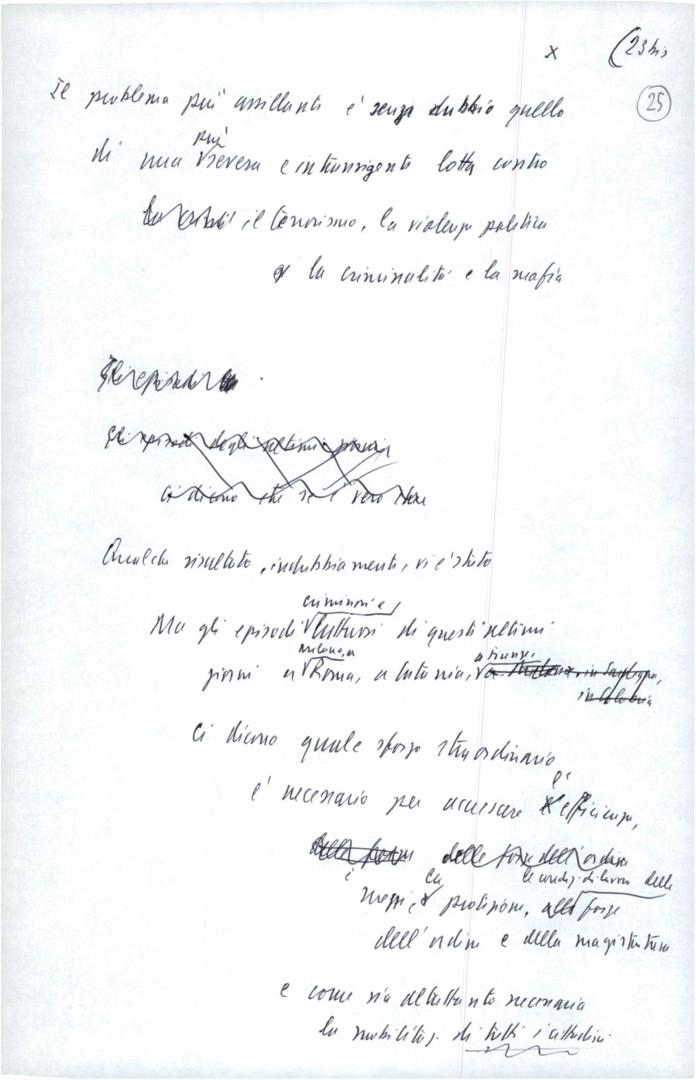 x (23 bis
25
Il problema più assillante è senza dubbio quello
più
di una severa e intransigente lotta contro
il terrorismo, la violenza politica
la criminalità e la mafia
Gli episodi
Gli episodi degli ultimi giorni
ci dicono che se è vero che
Qualche risultato, indubbiamente, vi è stato
criminosi e
Ma gli episodi luttuosi di questi ultimi
Milano, a a Firenze,
giorni a Roma, a Catania, a Milano, in Sardegna,
in Calabria
Ci dicono quale sforzo straordinario
è necessario per accrescere l'efficienza,
delle forze dell'ordine
i la le condiz. di lavoro delle
mezzi, protezione, alle forze
dell'ordine e della magistratura
e come sia altrettanto necessaria
la mobilitaz. di tutti i cittadini